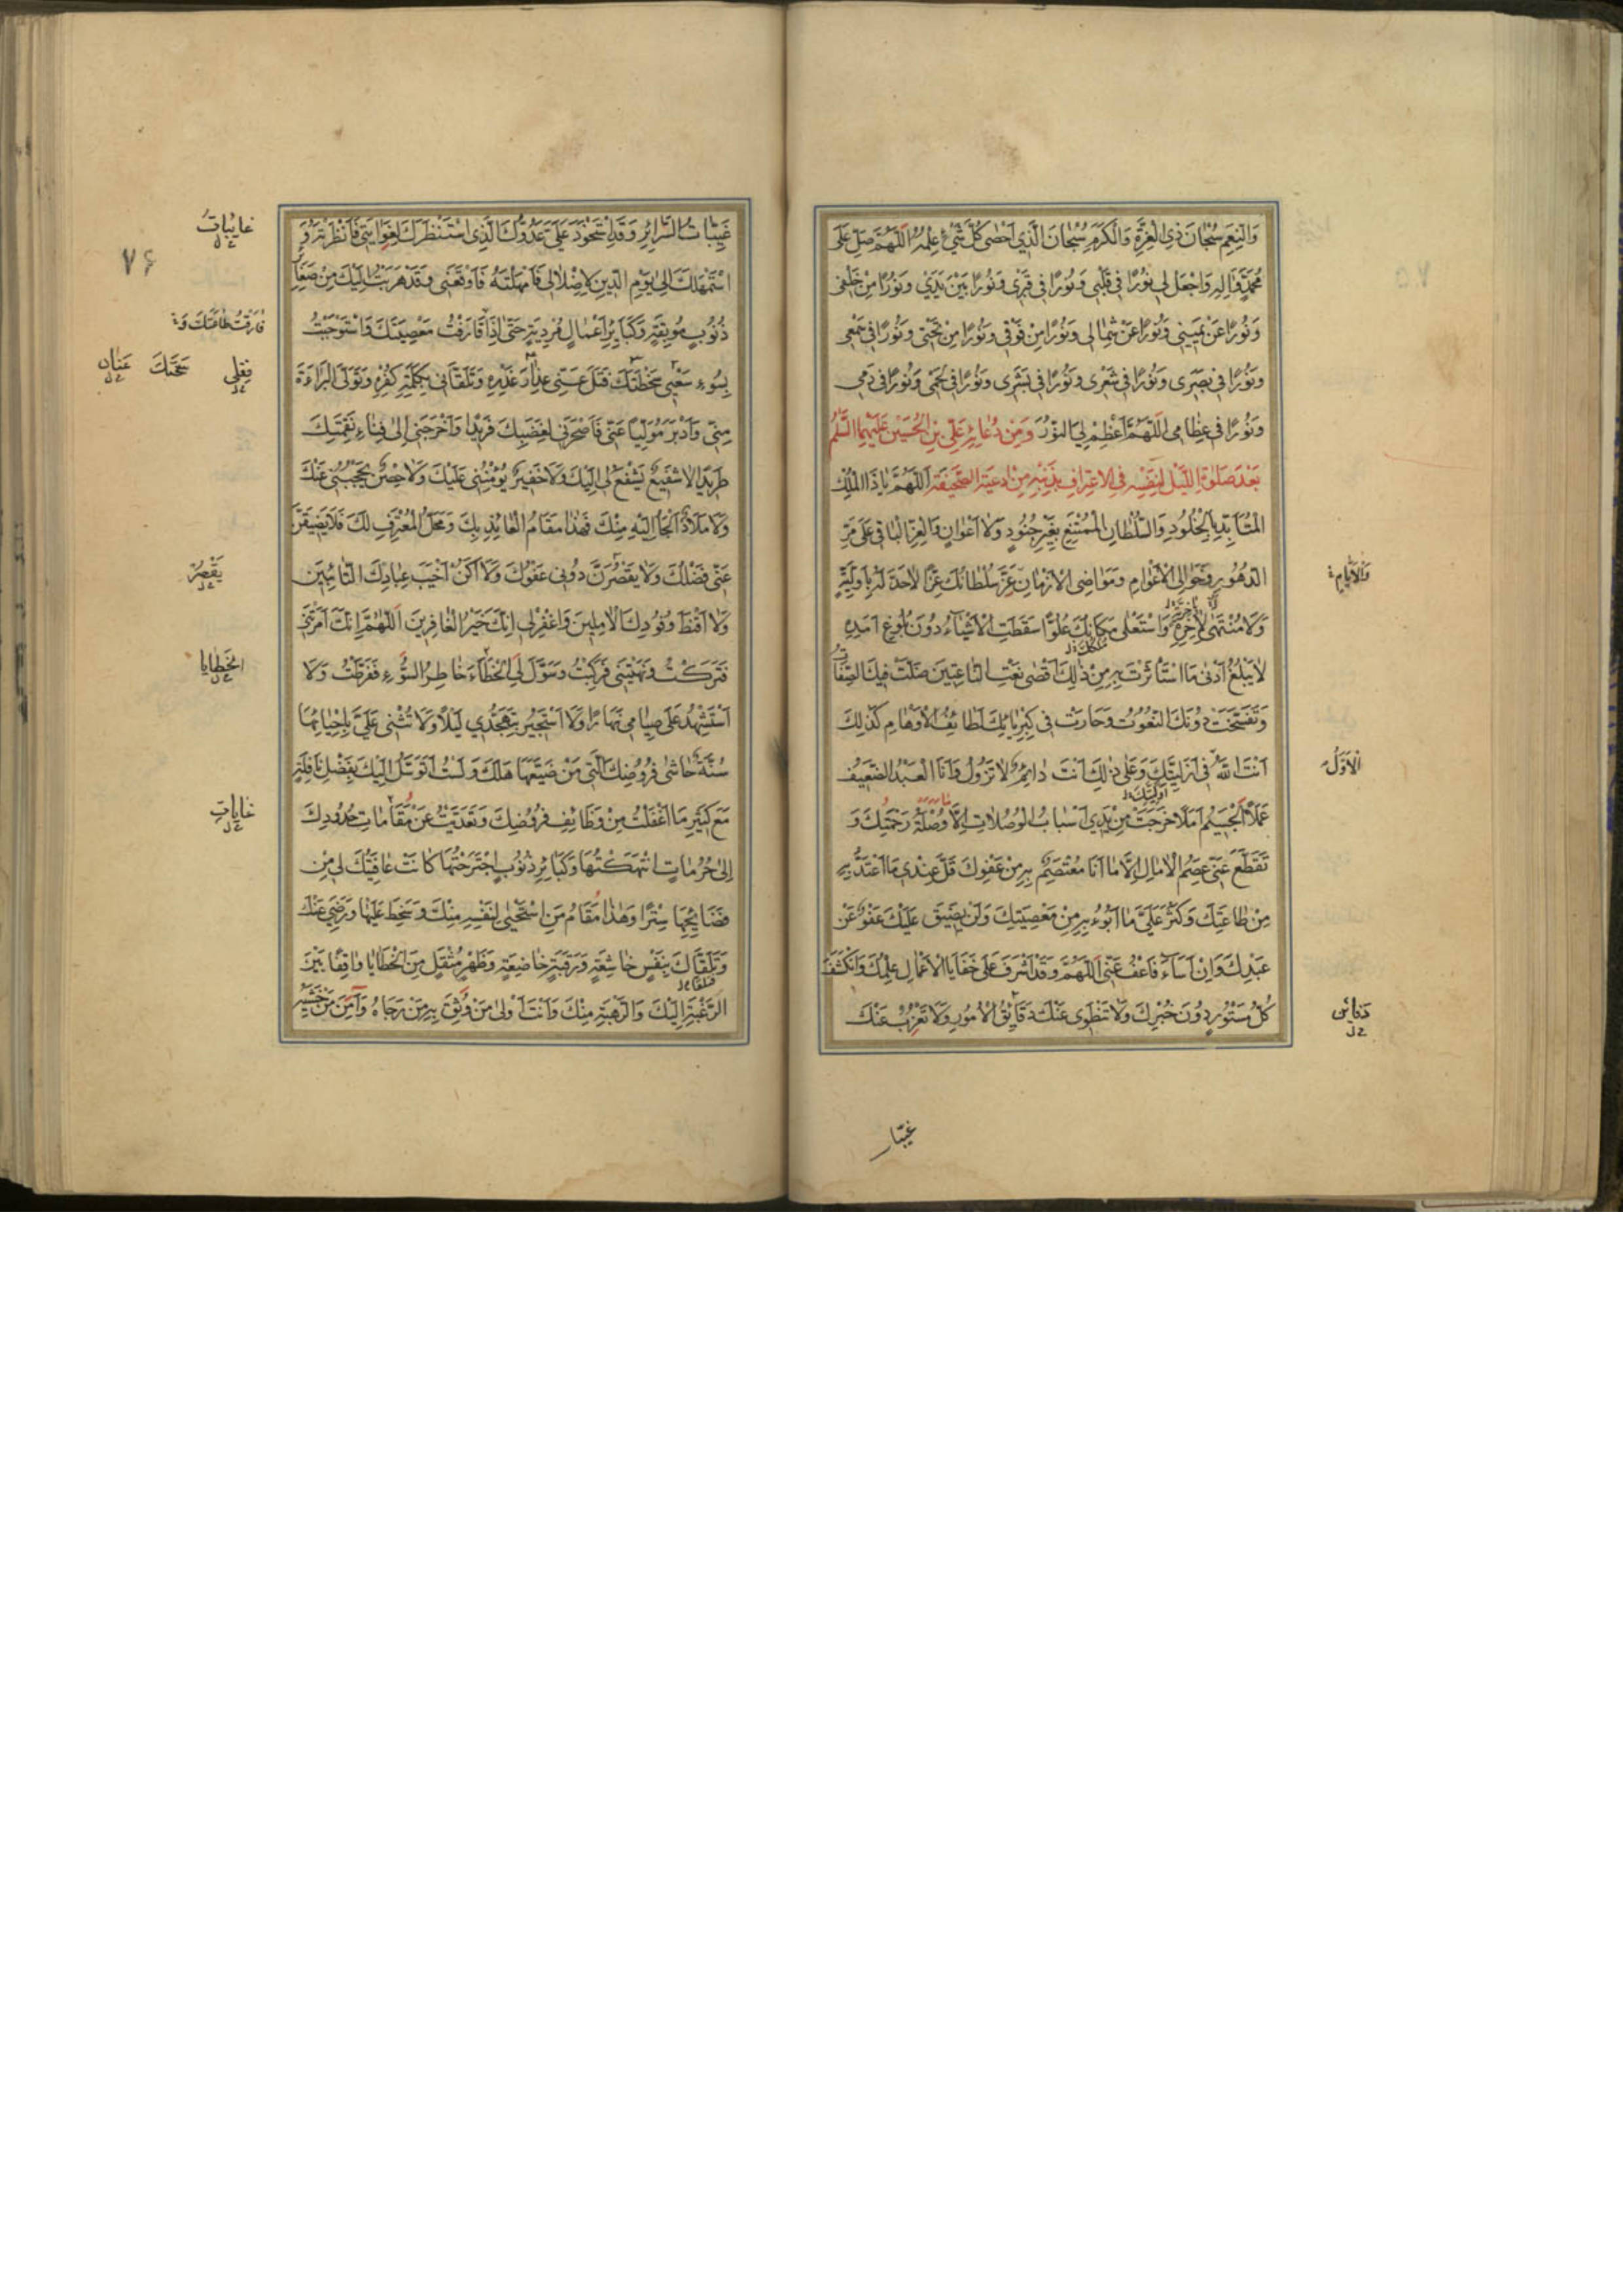 وَالنِّعَمِ سُبْحَانَ ذِي الْعِزَّةِ وَالْكَرَمِ سُبْحَانَ الَّذِي اَحْصٰى كُلَّ شَيْءٍ عِلْمُهُ اَللّٰهُمَّ صَلِّ عَلٰى
مُحَمَّدٍ وَاٰلِهِ وَاجْعَلْ لِي نُورًا فِي قَلْبِي وَنُورًا فِي قَبْرِي وَنُورًا بَيْنَ يَدَيَّ وَنُورًا مِنْ خَلْفِي
وَنُورًا عَنْ يَمِينِي وَنُورًا عَنْ شِمَالِي وَنُورًا مِنْ فَوْقِي وَنُورًا مِنْ تَحْتِي وَنُورًا فِي سَمْعِي
وَنُورًا فِي بَصَرِي وَنُورًا فِي شَعْرِي وَنُورًا فِي بَشَرِي وَنُورًا فِي لَحْمِي وَنُورًا فِي دَمِي
وَنُورًا فِي عِظَامِي اَللّٰهُمَّ اَعْظِمْ لِيَ النُّورَ وَمِنْ دُعَائِهِ عَلِيِّ بْنِ الْحُسَيْنِ عَلَيْهِمَا السَّلٰمُ
بَعْدَ صَلٰوةِ اللَّيْلِ لِنَفْسِهِ فِي الْاِعْتِرَافِ بِذَنْبِهِ مِنْ اَدْعِيَةِ الصَّحِيفَةِ اَللّٰهُمَّ يَا ذَا الْمُلْكِ
الْمُتَأَبِّدِ بِالْخُلُودِ وَالسُّلْطَانِ الْمُمْتَنِعِ بِغَيْرِ جُنُودٍ وَلَا اَعْوَانٍ وَالْعِزِّ الْبَاقِي عَلٰى مَرِّ
الدُّهُورِ وَخَوَالِي الْاَعْوَامِ وَمَوَاضِي الْاَزْمَانِ عَزَّ سُلْطَانُكَ عِزًّا لَا حَدَّ لَهُ بِاَوَّلِيَّةٍ
وَالْاَيَّامِ
وَلَا مُنْتَهٰى لَهُ بِاٰخِرِيَّةٍ وَاسْتَعْلٰى مَكَانُكَ عُلُوًّا سَقَطَتِ الْاَشْيَاءُ دُونَ بُلُوغِ اَمَدِهِ
مُلْكُكَ
لَا يَبْلُغُ اَدْنٰى مَا اسْتَأْثَرْتَ بِهِ مِنْ ذٰلِكَ اَقْصٰى نَعْتِ النَّاعِتِينَ ضَلَّتْ فِيكَ الصِّفَاتُ
وَتَفَسَّخَتْ دُونَكَ النُّعُوتُ وَحَارَتْ فِي كِبْرِيَائِكَ لَطَائِفُ الْاَوْهَامِ كَذٰلِكَ
اَنْتَ اللّٰهُ فِي اَزَلِيَّتِكَ وَعَلٰى ذٰلِكَ اَنْتَ دَائِمٌ لَا تَزُولُ وَاَنَا الْعَبْدُ الضَّعِيفُ
الْاَوَّلُ
اَوَّلِيَّتِكَ
عَمَلًا الْجَسِيمُ اَمَلًا خَرَجَتْ مِنْ يَدِي اَسْبَابُ الْوُصُلَاتِ اِلَّا وُصْلَةُ رَحْمَتِكَ وَ
تَقَطَّعَ عَنِّي عِصَمُ الْاٰمَالِ اِلَّا مَا اَنَا مُعْتَصِمٌ بِهِ مِنْ عَفْوِكَ قَلَّ عِنْدِي مَا اَعْتَدُّ بِهِ
مِنْ طَاعَتِكَ وَكَثُرَ عَلَيَّ مَا اَبُوءُ بِهِ مِنْ مَعْصِيَتِكَ وَلَنْ يَضِيقَ عَلَيْكَ عَفْوٌ عَنْ
عَبْدِكَ وَاِنْ اَسَاءَ فَاعْفُ عَنِّي اَللّٰهُمَّ وَقَدْ اَشْرَفَ عَلٰى خَفَايَا الْاَعْمَالِ عِلْمُكَ وَانْكَشَفَ
كُلُّ مَسْتُورٍ دُونَ خُبْرِكَ وَلَا تَنْطَوِي عَنْكَ دَقَائِقُ الْاُمُورِ وَلَا تَعْزُبُ عَنْكَ
غيبات
۷۶
غَيِّبَاتُ السَّرَائِرِ وَقَدِ اسْتَحْوَذَ عَلَيَّ عَدُوُّكَ الَّذِي اسْتَنْظَرَكَ لِغَوَايَتِي فَاَنْظَرْتَهُ وَ
غَايِبَاتُ
اسْتَمْهَلَكَ اِلٰى يَوْمِ الدِّينِ لِاِضْلَالِي فَاَمْهَلْتَهُ فَاَوْقَعَنِي وَقَدْ هَرَبْتُ اِلَيْكَ مِنْ صَغَائِرِ
ذُنُوبٍ مُوبِقَةٍ وَكَبَائِرِ اَعْمَالٍ مُرْدِيَةٍ حَتّٰى اِذَا قَارَفْتُ مَعْصِيَتَكَ وَاسْتَوْجَبْتُ
فَارَقْتُ طَاعَتَكَ وَ
بِسُوءِ سَعْيِي سَخْطَتَكَ فَتَلَ عَنِّي عِذَارَ غَدْرِهِ وَتَلَقَّانِي بِكَلِمَةِ كُفْرِهِ وَتَوَلَّى الْبَرَاءَةَ
فِعْلِي سَخَتَكَ عِنَانَ
مِنِّي وَاَدْبَرَ مُوَلِّيًا عَنِّي فَاَصْحَرَنِي لِغَضَبِكَ فَرِيدًا وَاَخْرَجَنِي اِلٰى فِنَاءِ نَقِمَتِكَ
طَرِيدًا لَا شَفِيعٌ يَشْفَعُ لِي اِلَيْكَ وَلَا خَفِيرٌ يُؤْمِنُنِي عَلَيْكَ وَلَا حِصْنٌ يَحْجُبُنِي عَنْكَ
وَلَا مَلَاذٌ اَلْجَأُ اِلَيْهِ مِنْكَ فَهٰذَا مَقَامُ الْعَائِذِ بِكَ وَمَحَلُّ الْمُعْتَرِفِ لَكَ فَلَا يَضِيقَنَّ
عَنِّي فَضْلُكَ وَلَا يَقْصُرَنَّ دُونِي عَفْوُكَ وَلَا اَكُنْ اَخْيَبَ عِبَادِكَ التَّائِبِينَ
يَقْصُرُ
وَلَا اَقْنَطَ وُفُودِكَ الْاٰمِلِينَ وَاغْفِرْ لِي اِنَّكَ خَيْرُ الْغَافِرِينَ اَللّٰهُمَّ اِنَّكَ اَمَرْتَنِي
فَتَرَكْتُ وَنَهَيْتَنِي فَرَكِبْتُ وَسَوَّلَ لِيَ الْخَطَاءَ خَاطِرُ السُّوءِ فَفَرَّطْتُ وَلَا
الْخَطَايَا
اَسْتَشْهِدُ عَلٰى صِيَامِي نَهَارًا وَلَا اَسْتَجِيرُ بِتَهَجُّدِي لَيْلًا وَلَا تُثْنِي عَلَيَّ بِاِحْيَائِهَا
سُنَّةٌ حَاشٰى فُرُوضِكَ الَّتِي مَنْ ضَيَّعَهَا هَلَكَ وَلَسْتُ اَتَوَسَّلُ اِلَيْكَ بِفَضْلِ نَافِلَةٍ
مَعَ كَثِيرِ مَا اَغْفَلْتُ مِنْ وَظَائِفِ فُرُوضِكَ وَتَعَدَّيْتُ عَنْ مَقَامَاتِ حُدُودِكَ
غَايَاتِ
اِلٰى حُرُمَاتٍ انْتَهَكْتُهَا وَكَبَائِرِ ذُنُوبٍ اجْتَرَحْتُهَا كَانَتْ عَافِيَتُكَ لِي مِنْ
فَضَائِحِهَا سِتْرًا وَهٰذَا مَقَامُ مَنِ اسْتَحْيٰى لِنَفْسِهِ مِنْكَ وَسَخِطَ عَلَيْهَا وَرَضِيَ عَنْكَ
وَتَلَقَّاكَ بِنَفْسٍ خَاشِعَةٍ وَرَقَبَةٍ خَاضِعَةٍ وَظَهْرٍ مُثْقَلٍ مِنَ الْخَطَايَا وَاقِفًا بَيْنَ
الرَّغْبَةِ اِلَيْكَ وَالرَّهْبَةِ مِنْكَ وَاَنْتَ اَوْلٰى مَنْ وُثِقَ بِهِ مَنْ رَجَاهُ وَاٰمَنَ مَنْ خَشِيَهُ